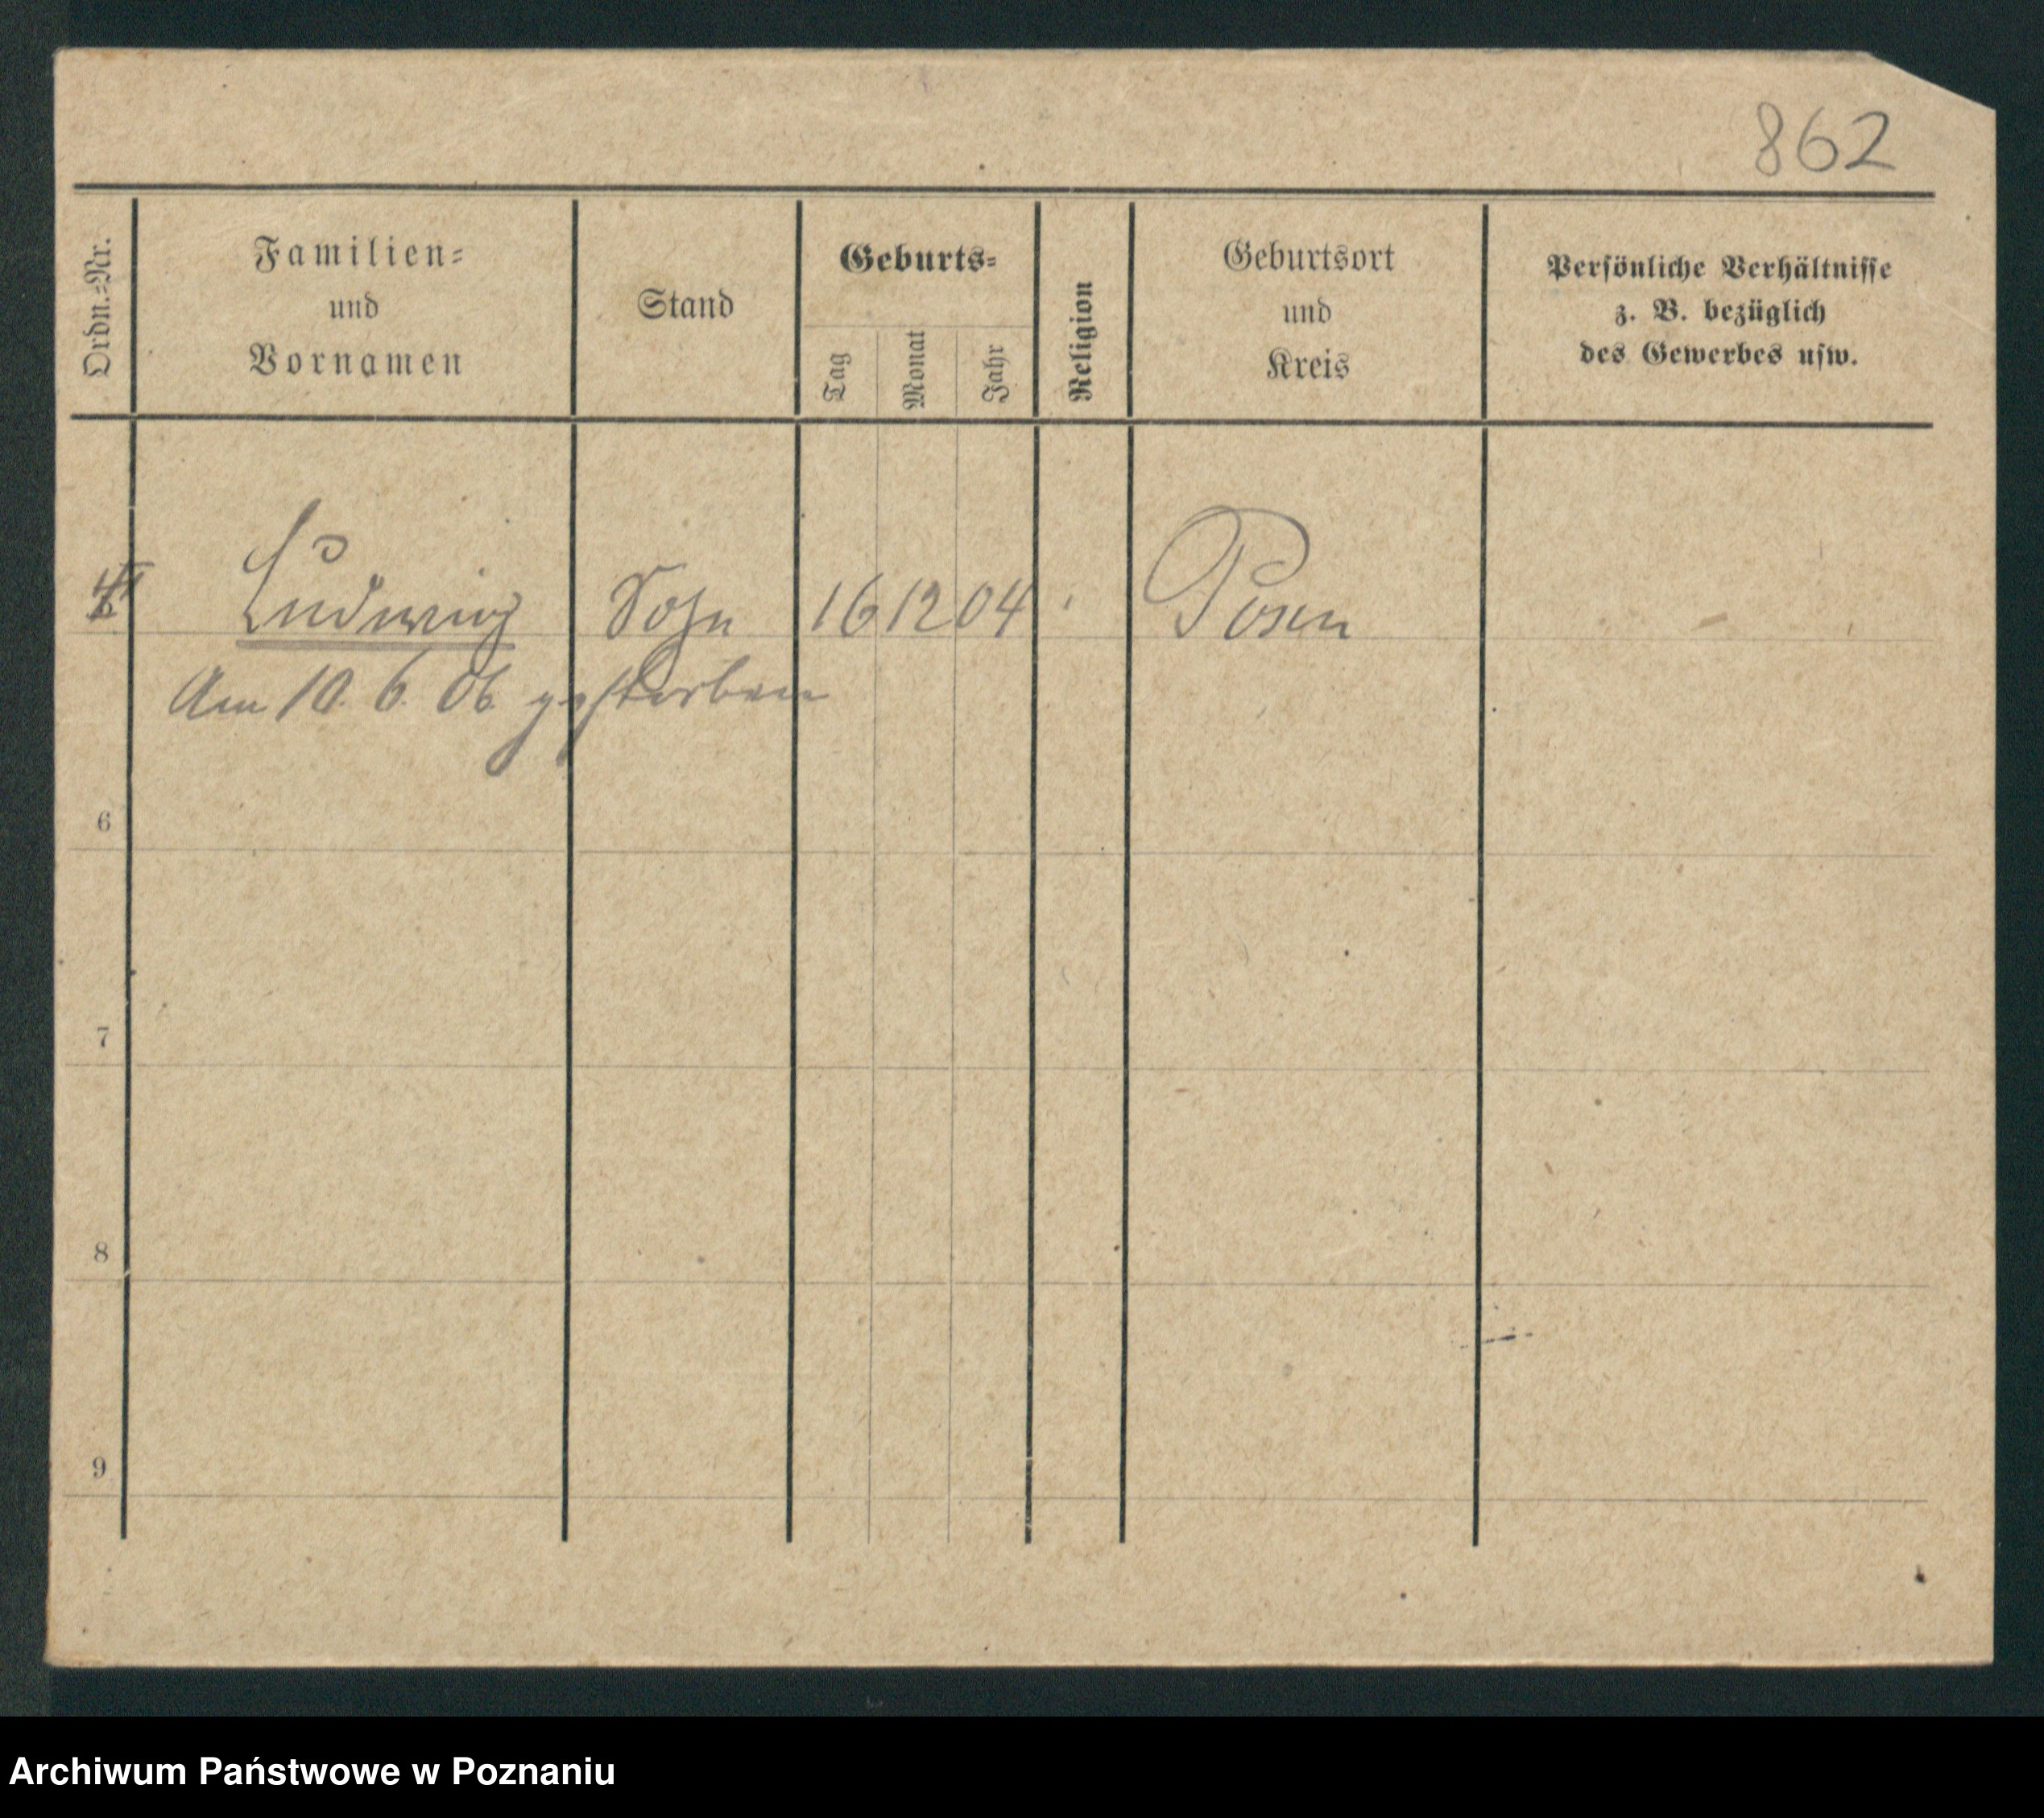 862
Ordn.-Nr.
Familien-
und
Vornamen
Stand
Geburts-
Tag
Monat
Jahr
Religion
Geburtsort
und
Kreis
Persönliche Verhältnisse
z. B. bezüglich
des Gewerbes usw.
Ludwig Sohn 16 12 04 Posen
Am 10. 6. 06. gestorben
6
7
8
9
Archiwum Państwowe w Poznaniu